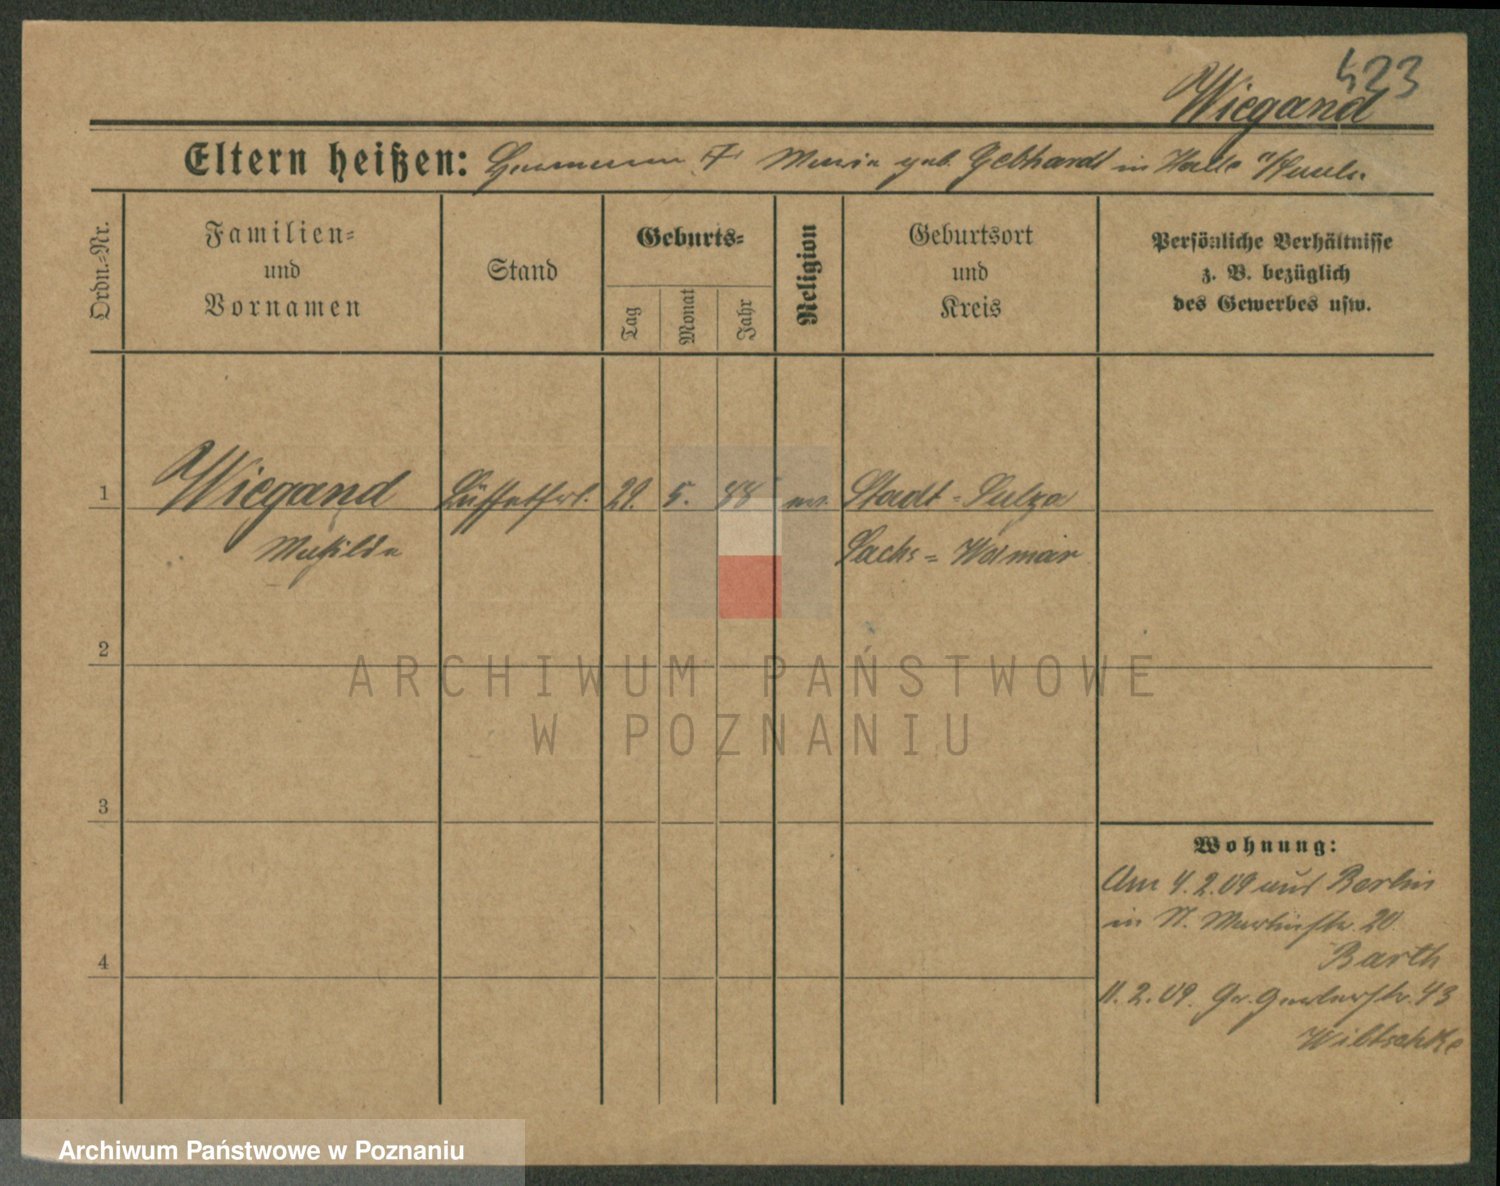 423
Wiegand
Eltern heißen: Hermann † Marie geb. Gebhardt in Halle a/Saale.
Ordn.-Nr.
Familien-
und
Vornamen
Stand
Geburts-
Tag
Monat
Jahr
Religion
Geburtsort
und
Kreis
Persönliche Verhältnisse
z. B. bezüglich
des Gewerbes usw.
1
Wiegand
Büffetfrl.
29.
5.
88
ev.
Stadt-Sulza
Mathilde
Sachs-Weimar
2
3
4
Wohnung:
Am 4.2.09 aus Berlin
in St. Martinstr. 20
Barth
11.2.09. Gr. Gerberstr. 43
Wiltschke
ARCHIWUM PAŃSTWOWE
W POZNANIU
Archiwum Państwowe w Poznaniu